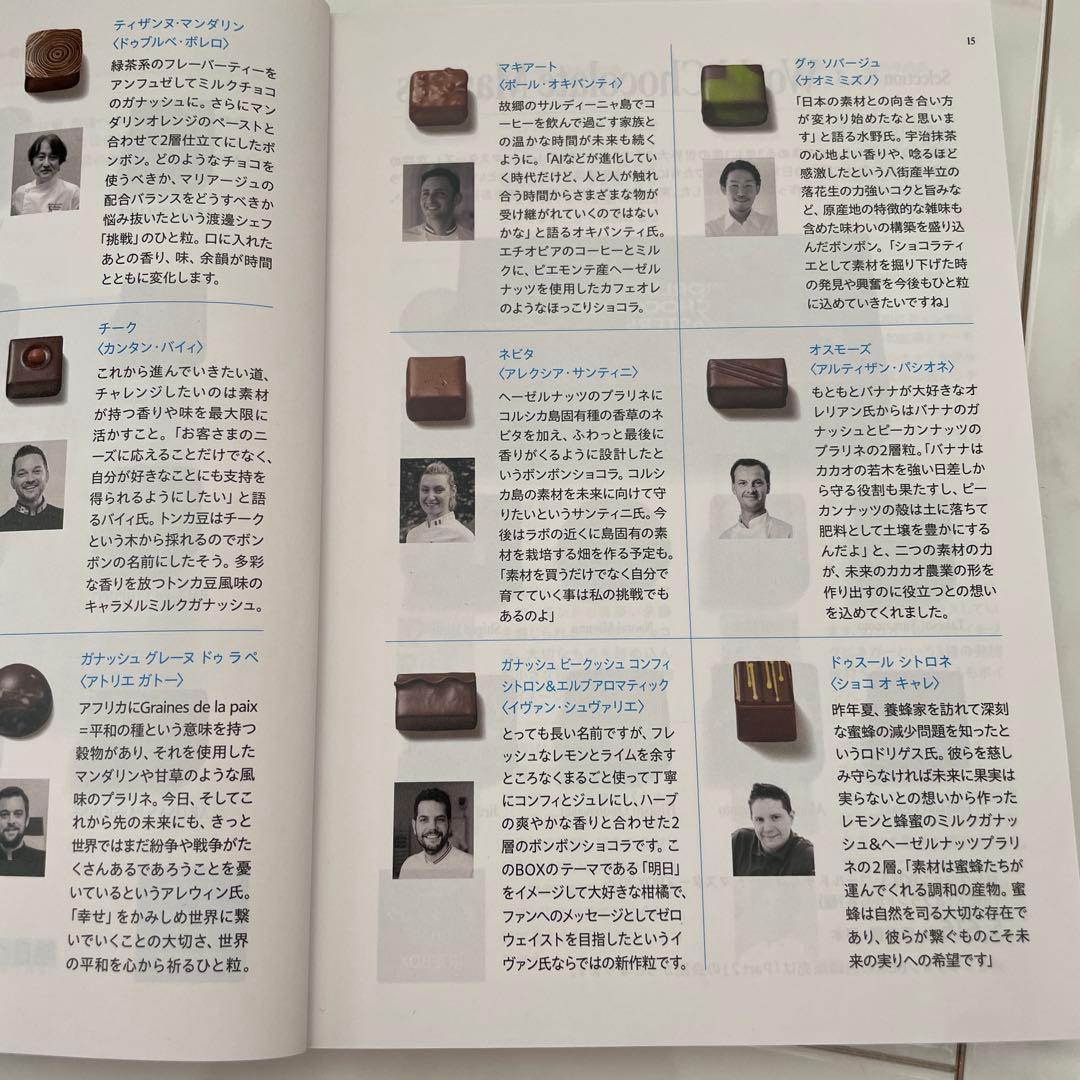 ティザンヌ・マンダリン
〈ドゥブルベ・ボレロ〉
緑茶系のフレーバーティーを
アンフュゼしてミルクチョコ
のガナッシュに。さらにマン
ダリンオレンジのペーストと
合わせて2層仕立てにしたボ
ンボン。どのようなチョコを
使うべきか、マリアージュの
配合バランスをどうすべきか
悩み抜いたという渡邊シェフ
「挑戦」のひと粒。口に入れた
あとの香り、味、余韻が時間
とともに変化します。
チーク
〈カンタン・バイィ〉
これから進んでいきたい道、
チャレンジしたいのは素材
が持つ香りや味を最大限に
活かすこと。「お客さまのニ
ーズに応えることだけでなく、
自分が好きなことにも支持を
得られるようにしたい」と語
るバイィ氏。トンカ豆はチーク
という木から採れるのでボン
ボンの名前にしたそう。多彩
な香りを放つトンカ豆風味の
キャラメルミルクガナッシュ。
ガナッシュ グレーヌ ドゥ ラ ペ
〈アトリエ ガトー〉
アフリカにGraines de la paix
=平和の種という意味を持つ
穀物があり、それを使用した
マンダリンや甘草のような風
味のプラリネ。今日、そしてこ
れから先の未来にも、きっと
世界ではまだ紛争や戦争がた
くさんあるであろうことを憂
いているというアレウィン氏。
「幸せ」をかみしめ世界に繋
いでいくことの大切さ、世界
の平和を心から祈るひと粒。
15
マキアート
〈ポール・オキパンティ〉
故郷のサルディーニャ島でコ
ーヒーを飲んで過ごす家族と
の温かな時間が未来も続く
ように。「AIなどが進化してい
く時代だけど、人と人が触れ
合う時間からさまざまな物が
受け継がれていくのではない
かな」と語るオキパンティ氏。
エチオピアのコーヒーとミル
クに、ピエモンテ産ヘーゼル
ナッツを使用したカフェオレ
のようなほっこりショコラ。
グゥ ソバージュ
〈ナオミ ミズノ〉
「日本の素材との向き合い方
が変わり始めたなと思いま
す」と語る水野氏。宇治抹茶
の心地よい香りや、唸るほど
感激したという八街産半立の
落花生の力強いコクと旨みな
ど、原産地の特徴的な雑味も
含めた味わいの構築を盛り込
んだボンボン。「ショコラティ
エとして素材を掘り下げた時
の発見や興奮を今後もひと粒
に込めていきたいですね」
ネビタ
〈アレクシア・サンティニ〉
ヘーゼルナッツのプラリネに
コルシカ島固有種の香草のネ
ビタを加え、ふわっと最後に
香りがくるように設計したと
いうボンボンショコラ。コルシ
カ島の素材を未来に向けて守
りたいというサンティニ氏。今
後はラボの近くに島固有の素
材を栽培する畑を作る予定も。
「素材を買うだけでなく自分で
育てていく事は私の挑戦でも
あるのよ」
オスモーズ
〈アルティザン・パシオネ〉
もともとバナナが大好きなオ
レリアン氏からはバナナのガ
ナッシュとピーカンナッツの
プラリネの2層粒。「バナナは
カカオの若木を強い日差しか
ら守る役割も果たすし、ピー
カンナッツの殻は土に落ちて
肥料として土壌を豊かにする
んだよ」と、二つの素材の力
が、未来のカカオ農業の形を
作り出すのに役立つとの想い
を込めてくれました。
ガナッシュ ビークッシュ コンフィ
シトロン&エルブアロマティック
〈イヴァン・シュヴァリエ〉
とっても長い名前ですが、フレ
ッシュなレモンとライムを余す
ところなくまるごと使って丁寧
にコンフィとジュレにし、ハーブ
の爽やかな香りと合わせた2
層のボンボンショコラです。こ
のBOXのテーマである「明日」
をイメージして大好きな柑橘で、
ファンへのメッセージとしてゼロ
ウェイストを目指したというイ
ヴァン氏ならではの新作粒です。
ドゥスール シトロネ
〈ショコ オ キャレ〉
昨年夏、養蜂家を訪れて深刻
な蜜蜂の減少問題を知ったと
いうロドリゲス氏。彼らを慈し
み守らなければ未来に果実は
実らないとの想いから作った
レモンと蜂蜜のミルクガナッ
シュ&ヘーゼルナッツプラリ
ネの2層。「素材は蜜蜂たちが
運んでくれる調和の産物。蜜
蜂は自然を司る大切な存在で
あり、彼らが繋ぐものこそ未
来の実りへの希望です」